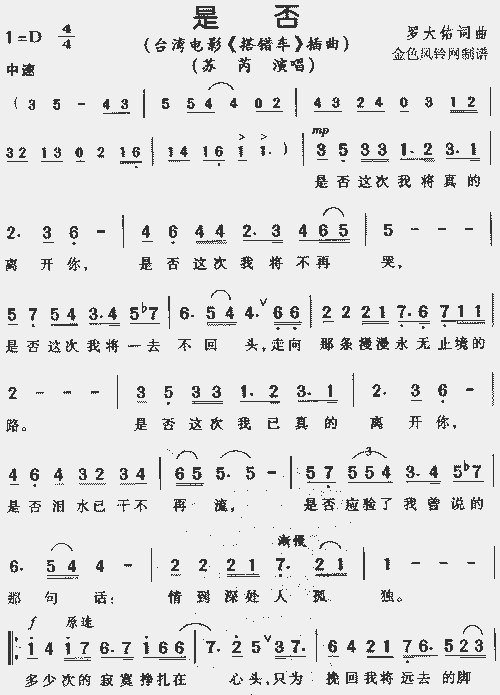 是否
1=D 4/4
(台湾电影《搭错车》插曲)
罗大佑词曲
金色风铃网制谱
中速
(苏芮 演唱)
(3 5 - 43 | 55 54 4 02 | 43 24 0 3 12
32 13 02 16 | 14 16 1 1.) | 3 5 33 1.2 3.1
mp
是否这次我将真的
2. 3 6 - | 4 6 44 2.3 465 | 5 - - - |
离开你, 是否这次我将不再 哭,
57 54 3.4 5♭7 | 6. 54 4.∨66 | 22 21 7.6 711 |
是否这次我将一去 不回 头,走向 那条漫漫永无止境的
2 - - - | 3 5 33 1.2 3.1 | 2. 3 6 - |
路。 是否这次我已真的 离开你,
46 4 32 34 | 65 5. 5 - | 57 554 3.4 5♭7
3
是否泪水已干不 再流, 是否应验了我曾说的
6. 54 4 - | 2 2 21 7. 21 | 1 - - - |
渐慢
那句话: 情到深处人孤 独。
f 原速
14 17 6.7 166 | 7. 25∨37. | 64 21 76. 523 |
多少次的寂寞挣扎在 心头,只为 挽回我将远去的脚